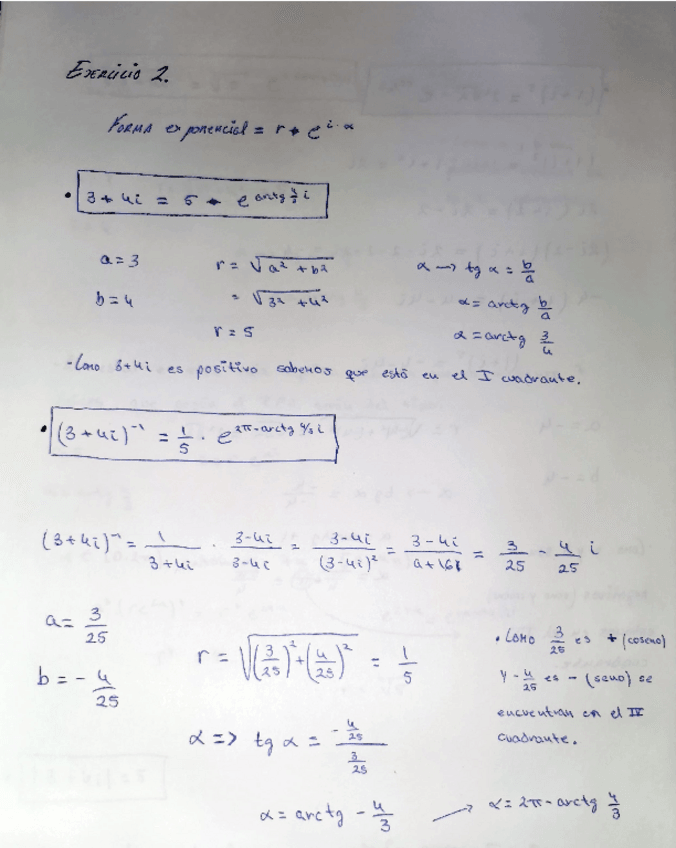 Exercicio 2.
Forma exponencial = r * e^{i·α}
• 3 + 4i = 5 * e^{arctg 4/3 i}
a = 3 r = √(a² + b²) α → tg α = b/a
b = 4 = √(3² + 4²) α = arctg b/a
r = 5 α = arctg 3/4
- Como 3+4i es positivo sabemos que está en el I cuadrante.
• (3 + 4i)⁻¹ = 1/5 · e^{2π - arctg 4/3 i}
(3 + 4i)⁻¹ = 1/(3 + 4i) · (3 - 4i)/(3 - 4i) = (3 - 4i)/(3 - 4i)² = (3 - 4i)/(9 + 16) = 3/25 - 4/25 i
a = 3/25
b = - 4/25
r = √((3/25)² + (4/25)²) = 1/5
• Como 3/25 es + (coseno)
y - 4/25 es - (seno) se
encuentran en el IV
cuadrante.
α => tg α = (-4/25)/(3/25)
α = arctg - 4/3 → α = 2π - arctg 4/3